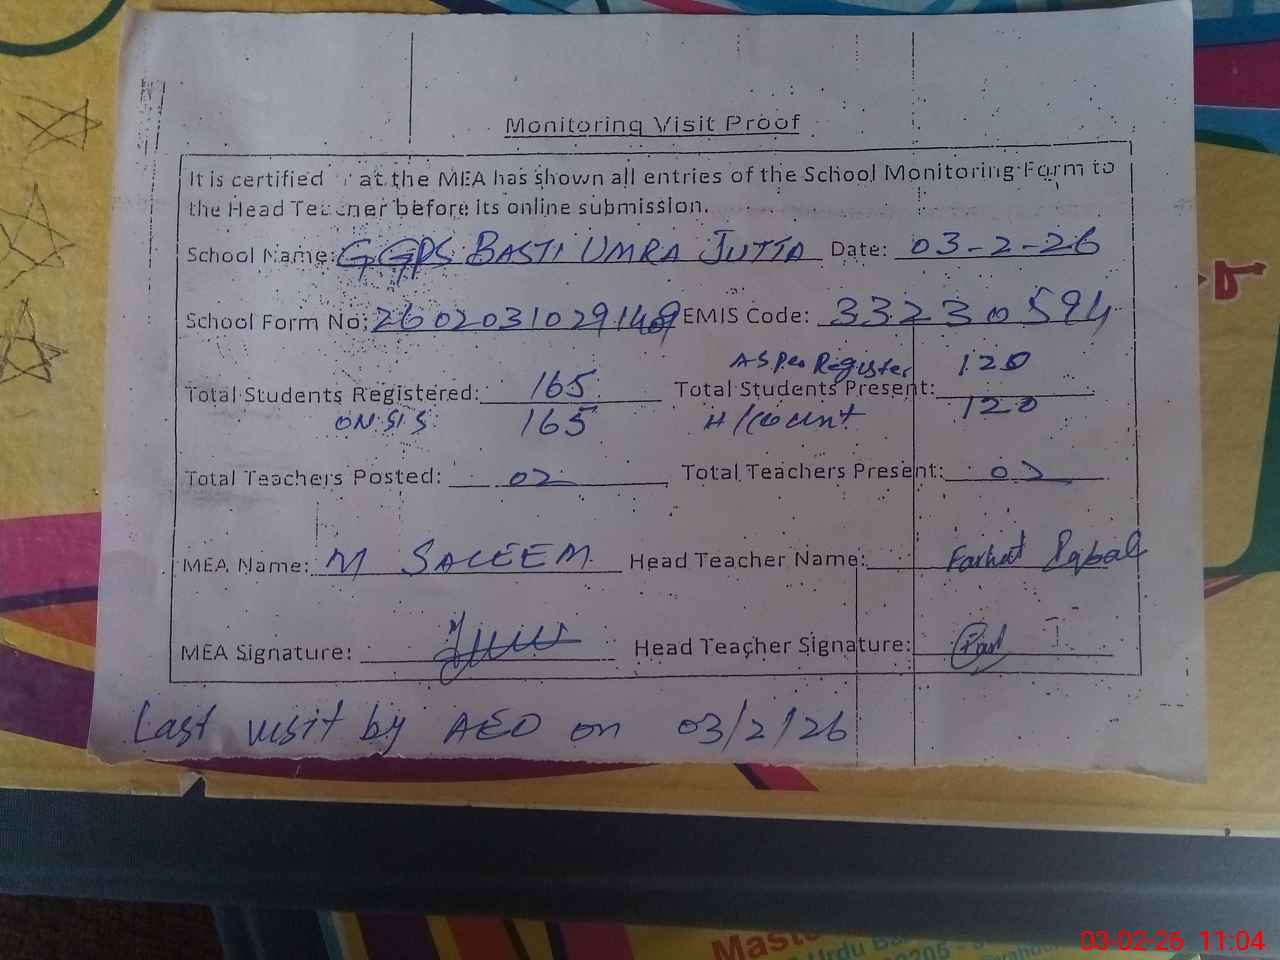 Monitoring Visit Proof
It is certified at the MEA has shown all entries of the School Monitoring Form to
the Head Teacher before its online submission.
School Name: GGPS BASTI UMRA JUTTA Date: 03-2-26
School Form No: EMIS Code: 332230594
As Per Register 120
Total Students Registered: 165 Total Students Present:
ON SIS 165 H/Count 120
Total Teachers Posted: 02 Total Teachers Present: 02
MEA Name: M SALEEM Head Teacher Name: Farhat Iqbal
MEA Signature: Head Teacher Signature:
Last visit by AEO on 03/2/26
03-02-26 11:04